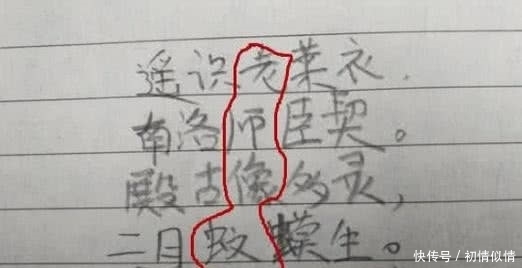 遥识老莱衣.
南洛师臣契。
殿古像多灵，
二月蚊蟆生。
快传号/初情似情